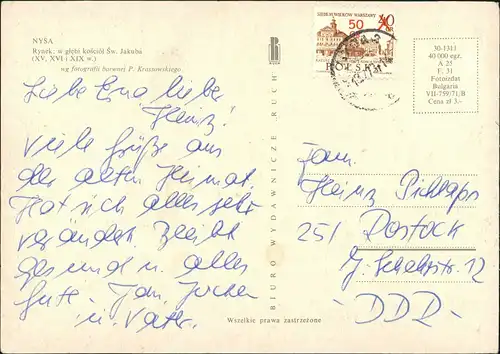 NYSA
Rynek: w głębi kościół Św. Jakuba
(XV, XVI i XIX w.)
wg fotografii barwnej P. Krassowskiego
Liebe Erna liebe
Heinz!
Viele Grüße aus
der alten Heimat.
Hat sich alles sehr
verändert. Bleibt
gesund u. alles
Gute. Jochen
u. Vater.
BIURO WYDAWNICZE RUCH
Wszelkie prawa zastrzeżone
SIEDEM WIEKÓW WARSZAWY
50 40
POLSKA
30-1311
40 000 egz.
A 25
F. 31
Fotoizdat
Bulgaria
VII-759/71/B
Cena zł 3.-
Fam.
Heinz
251 Rostock
12
DDR